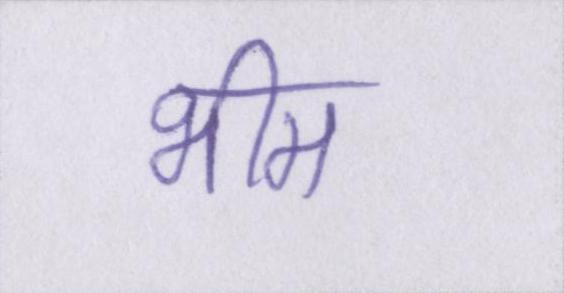 भीम